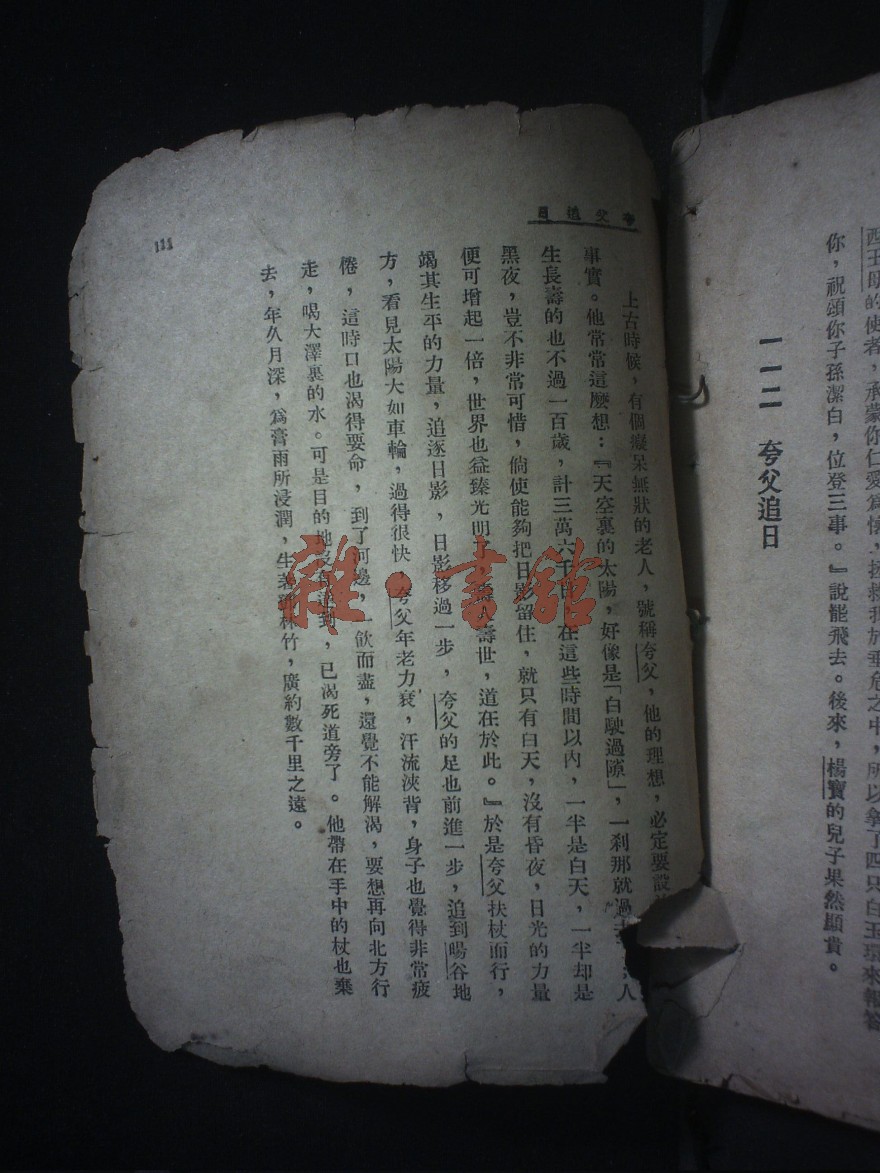 西王母的使者，承蒙你仁愛為懷，拯救我於垂危之中，所以拿了四只白玉環來報答
你，祝頌你子孫潔白，位登三事。』說罷飛去。後來，楊寶的兒子果然顯貴。
一一二　夸父追日
夸父追日
上古時候，有個癡呆無狀的老人，號稱夸父，他的理想，必定要設
事實。他常常這麼想：『天空裏的太陽，好像是「白駛過隙」，一剎那就過去 人
生長壽的也不過一百歲，計三萬六千 在這些時間以內，一半是白天，一半却是
黑夜，豈不非常可惜，倘使能夠把日影留住，就只有白天，沒有昏夜，日光的力量
便可增起一倍，世界也益臻光明了， 人壽世，道在於此。』於是夸父扶杖而行，
竭其生平的力量，追逐日影，日影移過一步，夸父的足也前進一步，追到暘谷地
方，看見太陽大如車輪，過得很快，夸父年老力衰，汗流浹背，身子也覺得非常疲
倦，這時口也渴得要命，到了河邊，一飲而盡，還覺不能解渴，要想再向北方行
走，喝大澤裏的水。可是目的地沒有 到，已渴死道旁了。他帶在手中的杖也棄
去，年久月深，為膏雨所浸潤，生著 林竹，廣約數千里之遠。
111
雜·書館